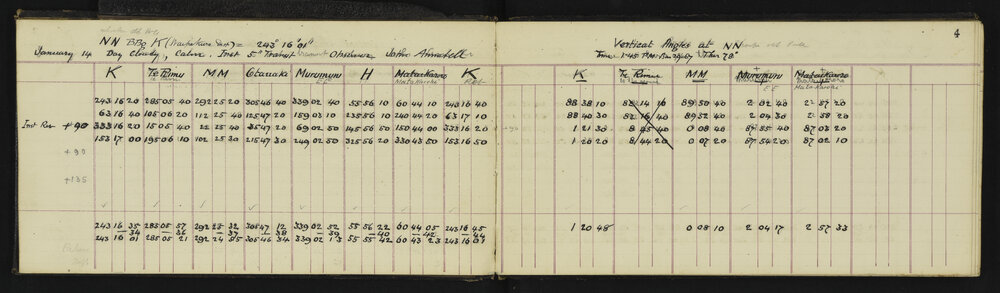 NN BBg K = 243° 16' 01"
January 14 Day Cloudy, Calm. Inst 5" Transit Observer John Annabell
K Te Pemu MM Otauaki Murumuru H Mataikaroro K
243 16 20 285 05 40 292 25 20 305 46 40 339 02 40 55 56 10 60 44 10 243 16 40
63 16 40 105 06 20 112 25 40 125 47 20 159 03 10 235 56 10 240 44 20 63 17 10
Inst Rev +90 333 16 20 15 05 40 22 25 40 35 47 20 69 02 50 145 56 50 150 44 00 333 16 20
153 17 00 195 06 10 102 25 30 215 47 30 249 02 50 325 56 20 330 43 50 153 16 50
+90
+135
243 16 35 285 05 57 292 25 32 305 47 12 339 02 52 55 56 22 60 44 05 243 16 45
34 36 37 38 39 40 42 44
243 16 01 285 05 21 292 24 55 305 46 34 339 02 13 55 55 42 60 43 23 243 16 01
4
Vertical Angles at NN
Time 1.45 P.M. Bar 29.67 Ther 78°
K Te Pemu MM Murumuru Mataikaroro
88 38 10 82 14 10 89 50 40 2 02 40 2 57 20
88 40 30 82 16 40 89 52 40 2 04 30 2 58 20
+90 1 21 30 8 45 40 0 08 40 87 55 40 87 03 20
1 20 20 8 44 20 0 07 20 87 54 20 87 02 10
1 20 48 0 08 10 2 04 17 2 57 33